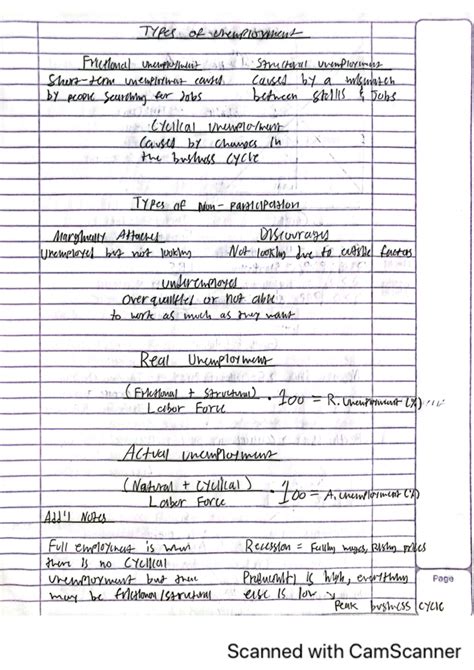 Types of unemployment
Frictional unemployment
Structural unemployment
Short-term unemployment caused
by people searching for Jobs
Caused by a mismatch
between skills & Jobs
Cyclical unemployment
Caused by changes in
the business cycle
Types of Non-participation
Marginally Attached
Unemployed but not looking
Discouraged
Not looking due to outside factors
underemployed
Overqualified or not able
to work as much as they want
Real Unemployment
(Frictional + Structural)
Labor Force
· 100 = R. Unemployment (%)
Actual unemployment
(Natural + Cyclical)
Labor Force
· 100 = A. unemployment (%)
Add'l Notes
Full employment is when
there is no cyclical
unemployment but there
may be frictional/structural
Recession = Falling wages, Rising prices
Productivity is high, everything
else is low
Peak business cycle
Page
Scanned with CamScanner